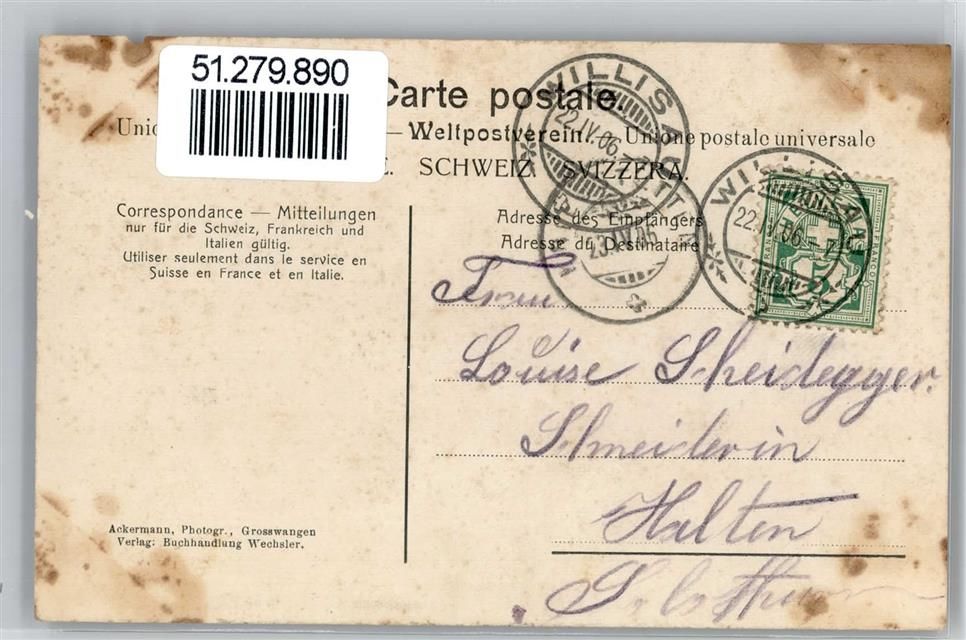 51.279.890
Carte postale.
— Weltpostverein. — Unione postale universale
SCHWEIZ. SVIZZERA.
WILLISAU
22.IV.06
WILLISAU
22.IV.06
23.IV.06
FRANCO
Correspondance — Mitteilungen
nur für die Schweiz, Frankreich und
Italien gültig.
Utiliser seulement dans le service en
Suisse en France et en Italie.
Adresse des Empfängers
Adresse du Destinataire
Frau
Louise Scheidegger.
Schneiderin
Halten
Solothurn
Ackermann, Photogr., Grosswangen
Verlag: Buchhandlung Wechsler.